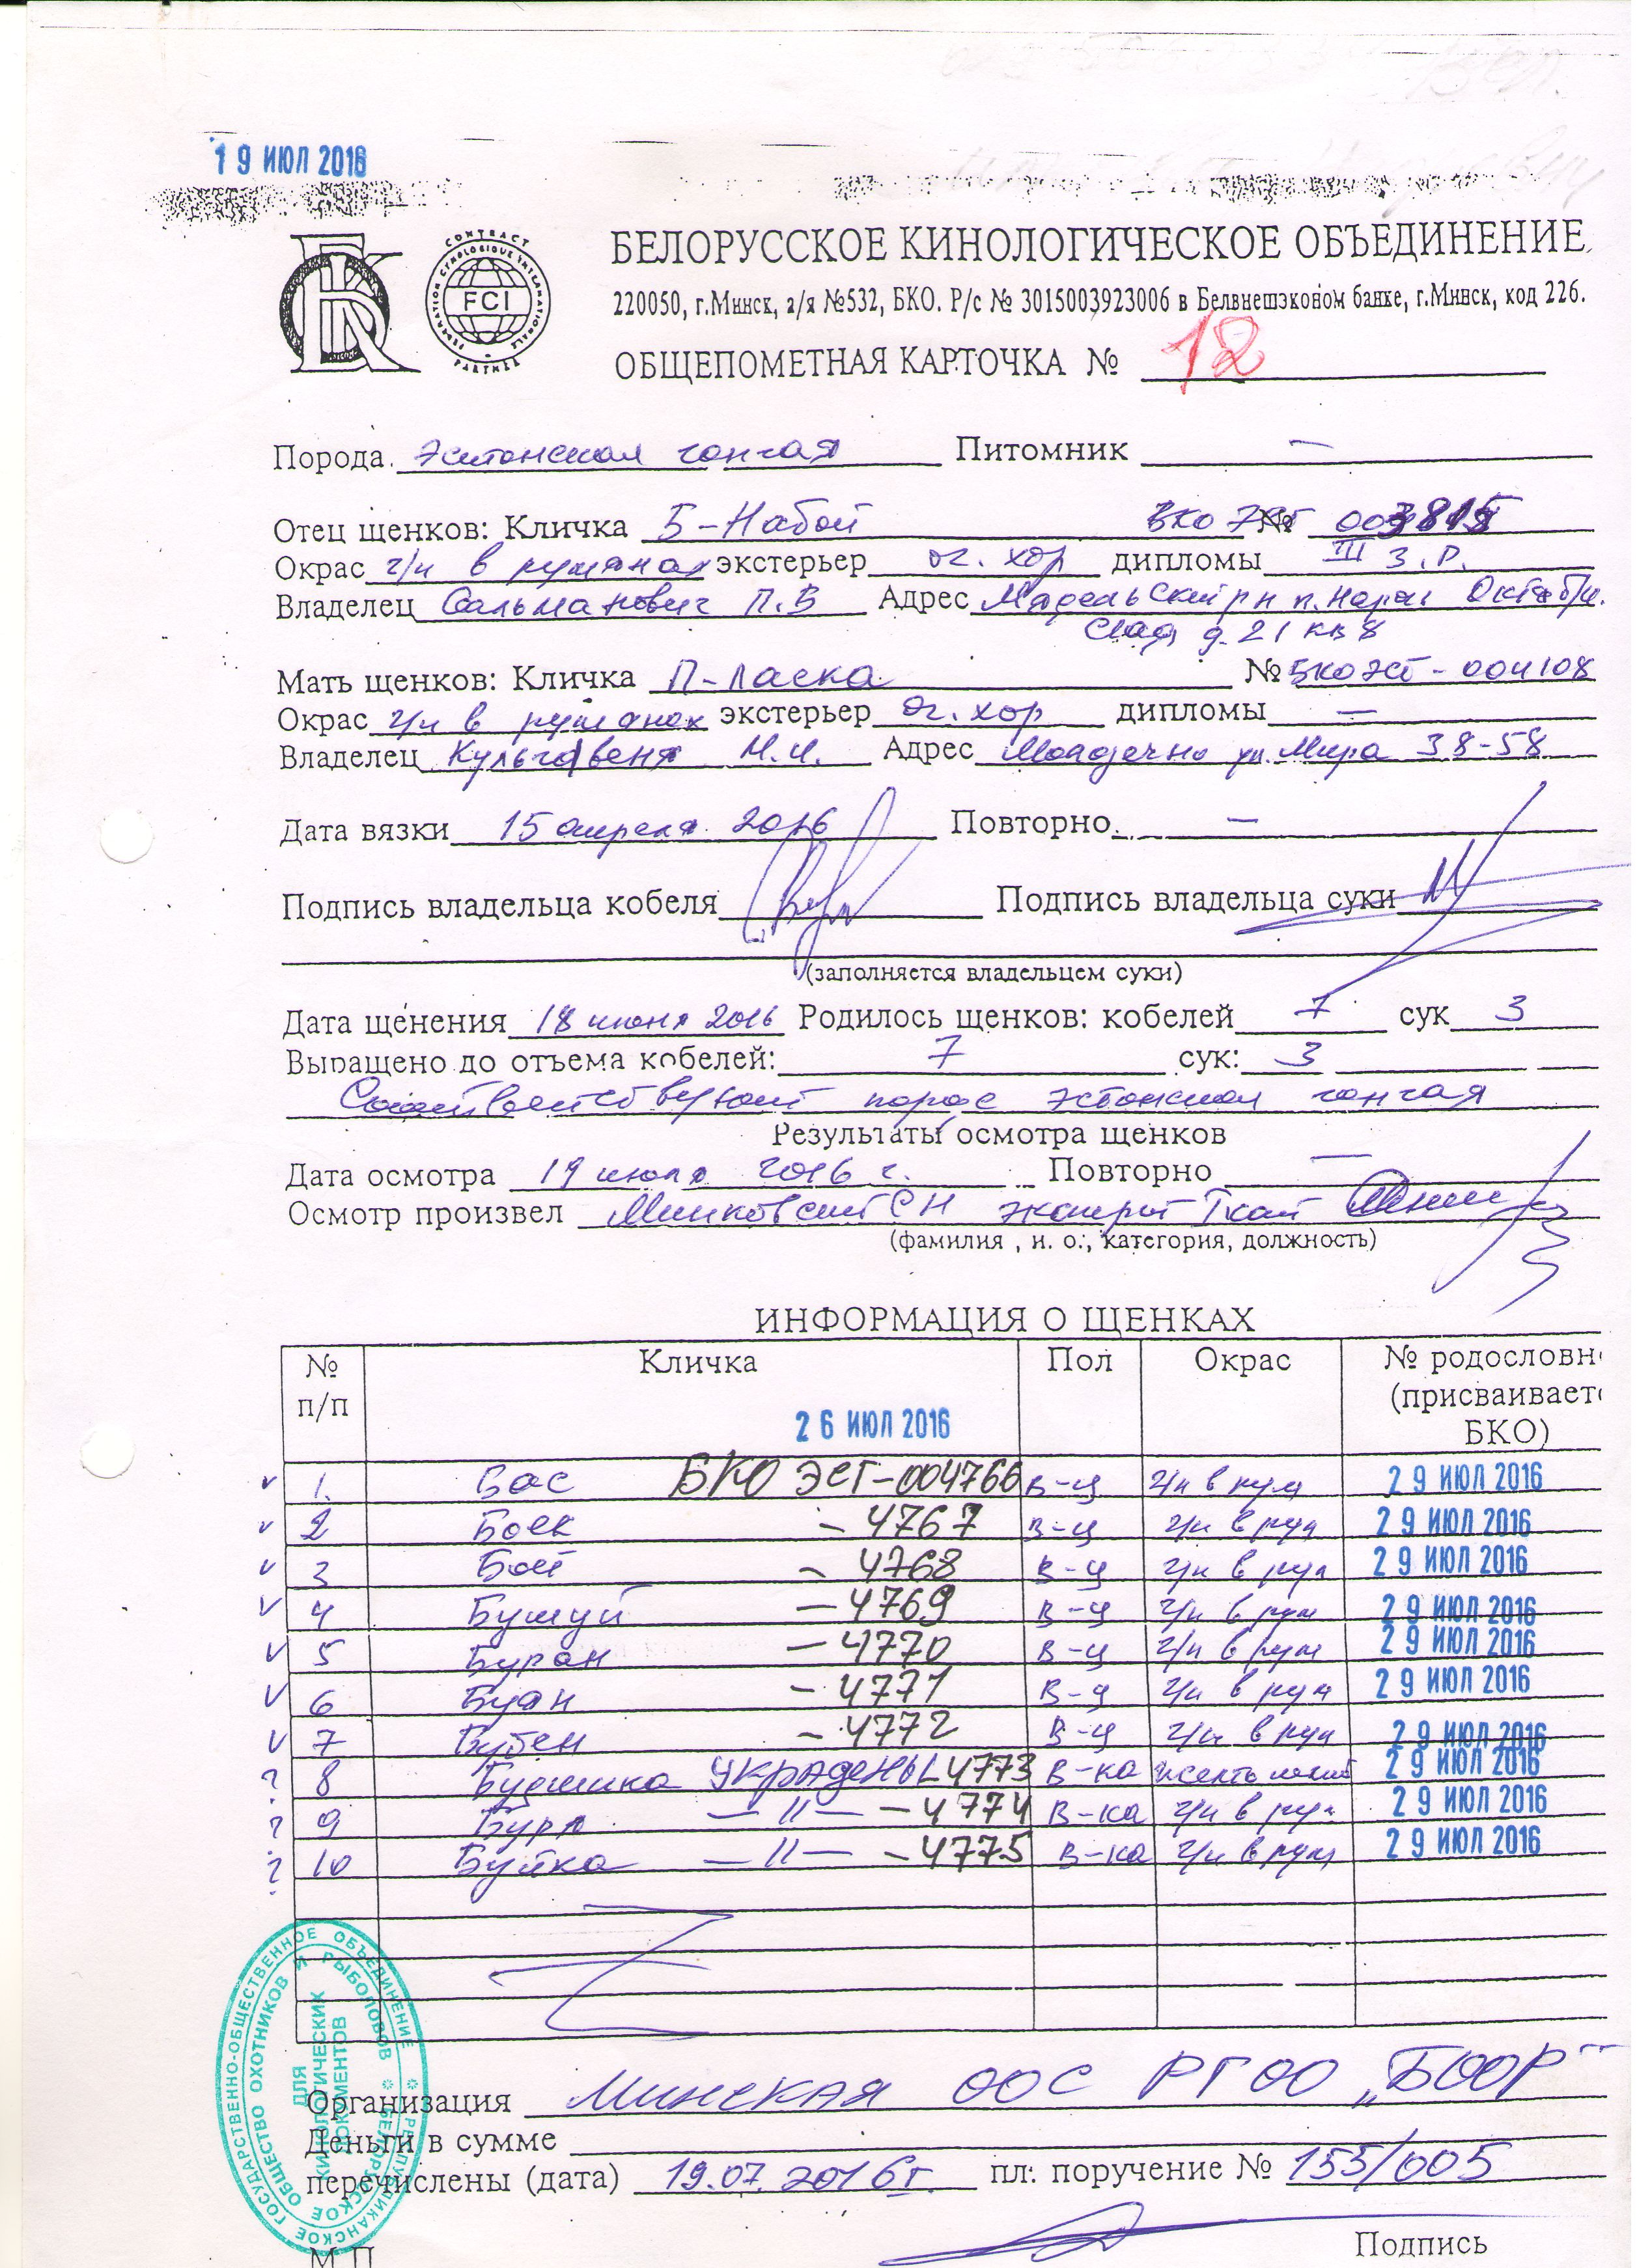 19 ИЮЛ 2016
CONTRACT
FEDERATION CYNOLOGIQUE INTERNATIONALE
FCI
PARTNER
БЕЛОРУССКОЕ КИНОЛОГИЧЕСКОЕ ОБЪЕДИНЕНИЕ
220050, г.Минск, а/я №532, БКО. Р/с № 3015003923006 в Белвнешэконом банке, г.Минск, код 226.
ОБЩЕПОМЕТНАЯ КАРТОЧКА № 12
Порода Эстонская гончая Питомник —
Отец щенков: Кличка Б-Набой №
Окрас ч/п в румянах экстерьер оч. хор дипломы III З.Р.
Владелец Сальманович П.В Адрес
д. 21 кв 8
Мать щенков: Кличка П-Ласка № БКО ЭСТ-004108
Окрас ч/п в румянах экстерьер оч. хор дипломы —
Владелец М.И. Адрес Молодечно ул. Мира 38-58
Дата вязки 15 апреля 2016 Повторно —
Подпись владельца кобеля Подпись владельца суки
(заполняется владельцем суки)
Дата щенения 18 июня 2016 Родилось щенков: кобелей 7 сук 3
Выращено до отъема кобелей: 7 сук: 3
породе эстонская гончая
Результаты осмотра щенков
Дата осмотра 19 июля 2016 г. Повторно —
Осмотр произвел Минковский С Н эксперт
(фамилия, и. о., категория, должность)
ИНФОРМАЦИЯ О ЩЕНКАХ
№ п/п Кличка Пол Окрас № родословн (присваивает БКО)
26 ИЮЛ 2016
1. Бас БКО ЭСГ-004766 В-ц ч/п в рум 29 ИЮЛ 2016
2 Боек - 4767 В-ц ч/п в рум 29 ИЮЛ 2016
3 Бой - 4768 В-ц ч/п в рум 29 ИЮЛ 2016
4 Бушуй - 4769 В-ц ч/п в рум 29 ИЮЛ 2016
5 Буран - 4770 В-ц ч/п в рум 29 ИЮЛ 2016
6 Буян - 4771 В-ц ч/п в рум 29 ИЮЛ 2016
7 Бубен - 4772 В-ц ч/п в рум 29 ИЮЛ 2016
? 8 УКРАДЕНЫ 4773 В-ка 29 ИЮЛ 2016
? 9 Буря — 11 — - 4774 В-ка ч/п в рум 29 ИЮЛ 2016
? 10 Буйка — 11 — - 4775 В-ка ч/п в рум 29 ИЮЛ 2016
РЕСПУБЛИКАНСКОЕ ГОСУДАРСТВЕННО-ОБЩЕСТВЕННОЕ ОБЪЕДИНЕНИЕ
БЕЛОРУССКОЕ ОБЩЕСТВО ОХОТНИКОВ И РЫБОЛОВОВ
ДЛЯ КИНОЛОГИЧЕСКИХ ДОКУМЕНТОВ
Организация МИНСКАЯ ООС РГОО „БООР"
Деньги в сумме
перечислены (дата) 19.07.2016г. пл: поручение № 155/005
М П Подпись